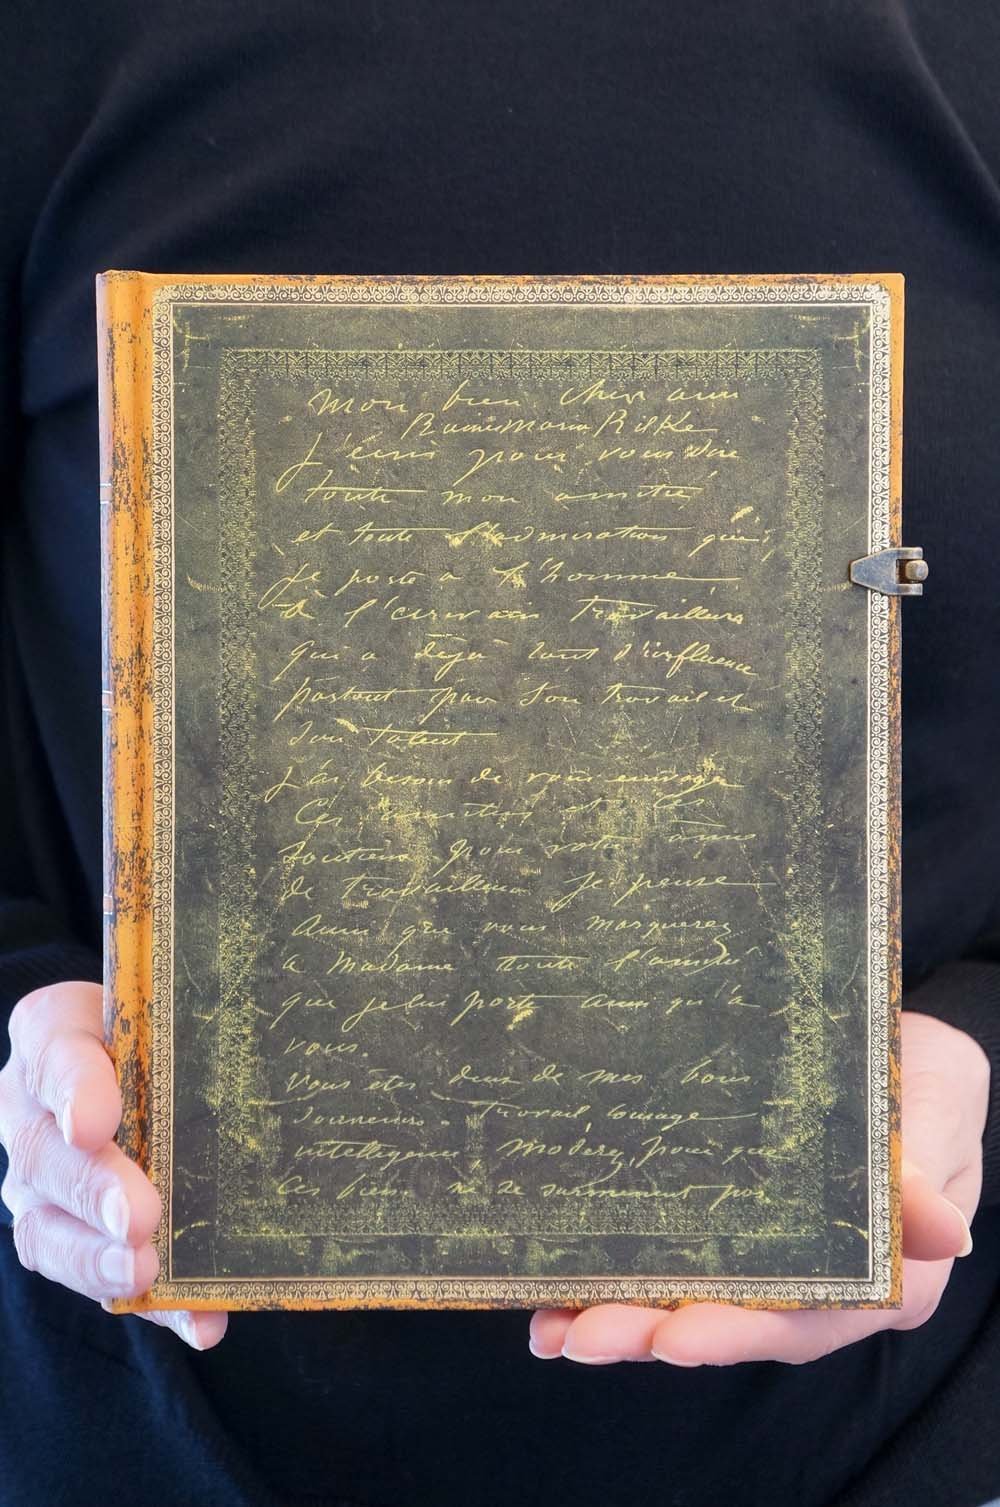 Mon bien cher ami
Rainer Maria Rilke
J'écris pour vous dire
toute mon amitié
et toute l'admiration que
je porte à l'homme
à l'écrivain travailleurs
qui a déjà tant d'influence
partout par son travail et
son talent
J'ai besoin de vous envoyer
Ces amitiés et
soutiens pour votre
de travailleur Je pense
Aussi que vous marquerez
a Madame toute l'amitié
que je lui porte ainsi qu'à
vous.
Vous êtes deux de mes bons
souvenirs. Travail courage
intelligence Modèrez, pour que
Ces biens ne se surmènent pas